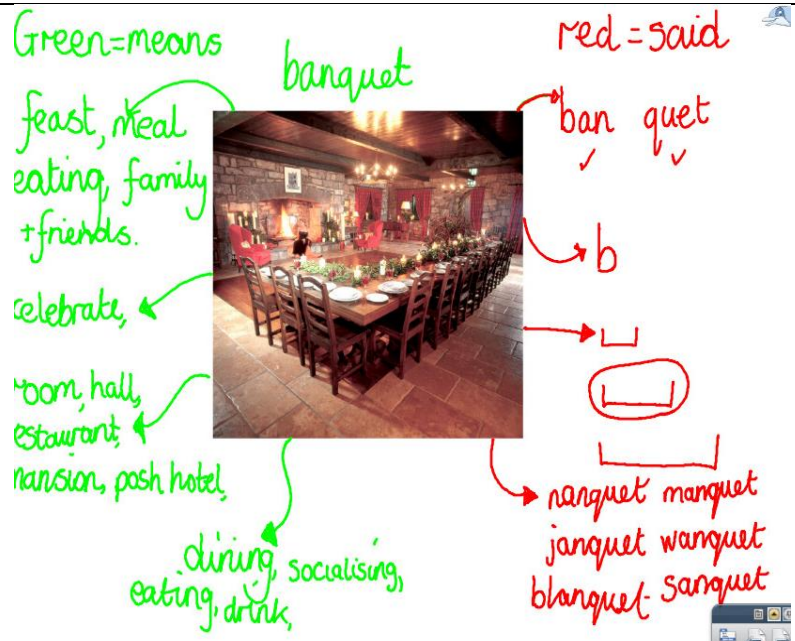 Green=means
banquet
red = said
feast, meal
eating, family
+friends.
celebrate,
room, hall,
restaurant,
mansion, posh hotel,
dining, socialising,
eating, drink,
ban quet
b
nanquet manquet
janquet wanquet
blanquet- sanquet